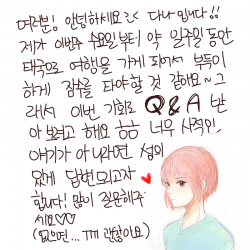 여러분! 안녕하세요 다나입니다!!
제가 이번주 수요일부터 약 일주일 동안
태국으로 여행을 가게 되어서 부득이
하게 잠수를 타야할 것 같아요~ 그
래서 이번 기회로 Q & A 받
아 보려고 해요 ㅎㅎ 너무 사적인,
얘기가 아니라면 성의
있게 답변드리고자
합니다! 많이 질문해주
세요♡♡
(없으면... ㅠㅠ 괜찮아요)